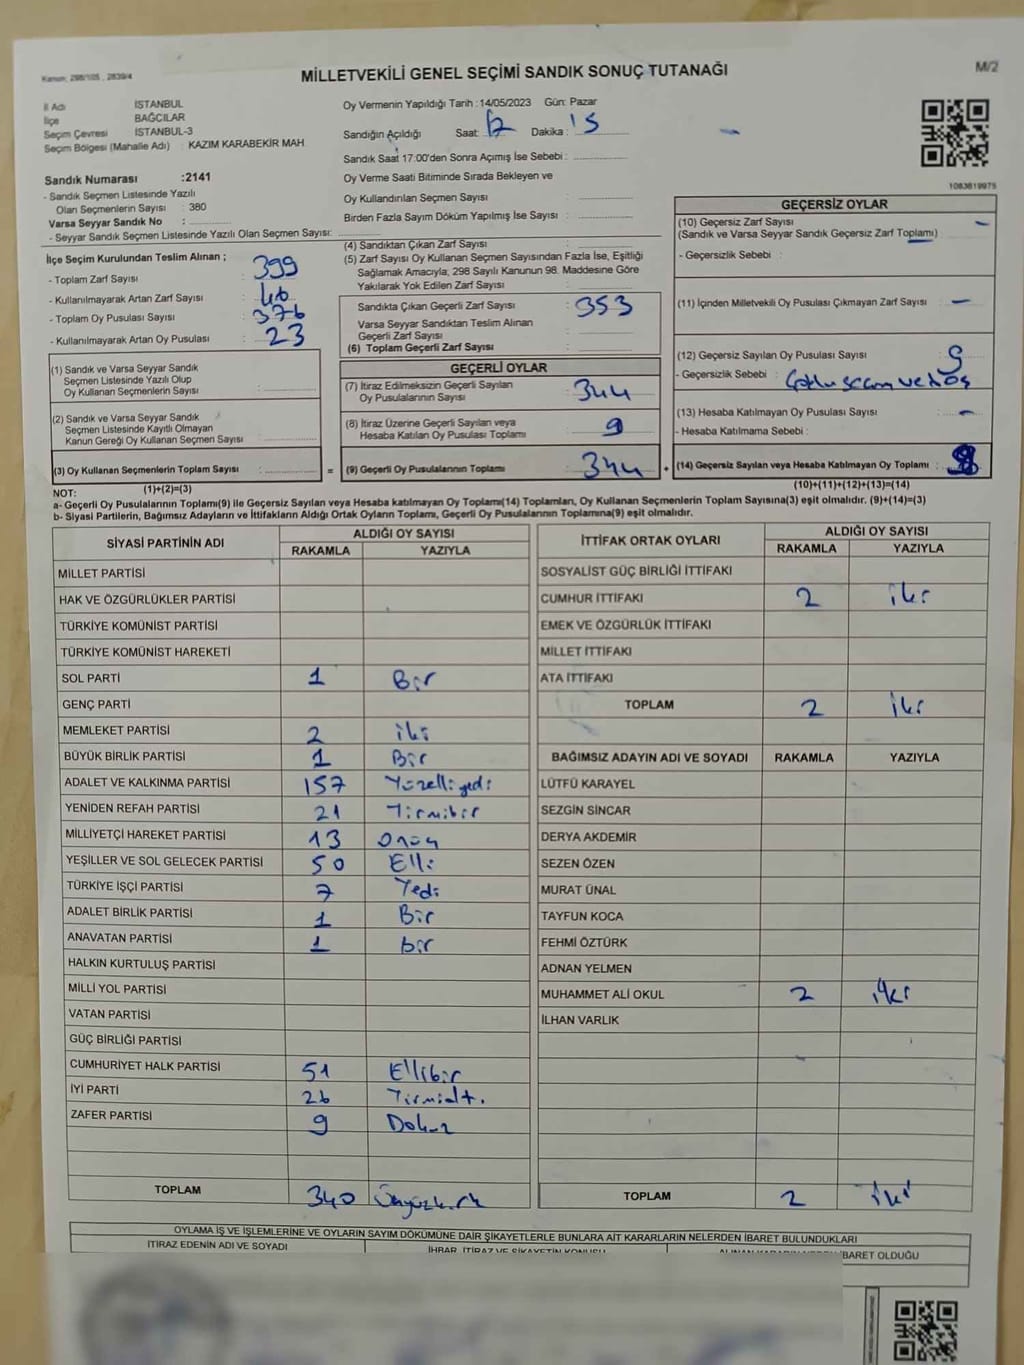 Kanun; 298/105 , 2839/4
MİLLETVEKİLİ GENEL SEÇİMİ SANDIK SONUÇ TUTANAĞI
M/2
İl Adı İSTANBUL
İlçe BAĞCILAR
Seçim Çevresi İSTANBUL-3
Seçim Bölgesi (Mahalle Adı) : KAZIM KARABEKİR MAH.
Sandık Numarası :2141
- Sandık Seçmen Listesinde Yazılı
Olan Seçmenlerin Sayısı : 380
Varsa Seyyar Sandık No :
- Seyyar Sandık Seçmen Listesinde Yazılı Olan Seçmen Sayısı:
Oy Vermenin Yapıldığı Tarih :14/05/2023 Gün: Pazar
Sandığın Açıldığı Saat: 17 Dakika : 15
Sandık Saat 17:00'den Sonra Açımış İse Sebebi :
Oy Verme Saati Bitiminde Sırada Bekleyen ve
Oy Kullandırılan Seçmen Sayısı :
Birden Fazla Sayım Döküm Yapılmış İse Sayısı :
1083619975
İlçe Seçim Kurulundan Teslim Alınan ;
- Toplam Zarf Sayısı : 399
- Kullanılmayarak Artan Zarf Sayısı : 46
- Toplam Oy Pusulası Sayısı : 376
- Kullanılmayarak Artan Oy Pusulası : 23
(1) Sandık ve Varsa Seyyar Sandık
Seçmen Listesinde Yazılı Olup
Oy Kullanan Seçmenlerin Sayısı :
(2) Sandık ve Varsa Seyyar Sandık
Seçmen Listesinde Kayıtlı Olmayan
Kanun Gereği Oy Kullanan Seçmen Sayısı :
(3) Oy Kullanan Seçmenlerin Toplam Sayısı :
(1)+(2)=(3)
(4) Sandıktan Çıkan Zarf Sayısı :
(5) Zarf Sayısı Oy Kullanan Seçmen Sayısından Fazla İse, Eşitliği
Sağlamak Amacıyla, 298 Sayılı Kanunun 98. Maddesine Göre
Yakılarak Yok Edilen Zarf Sayısı :
Sandıkta Çıkan Geçerli Zarf Sayısı : 353
Varsa Seyyar Sandıktan Teslim Alınan
Geçerli Zarf Sayısı :
(6) Toplam Geçerli Zarf Sayısı :
GEÇERLİ OYLAR
(7) İtiraz Edilmeksizin Geçerli Sayılan
Oy Pusulalarının Sayısı : 344
(8) İtiraz Üzerine Geçerli Sayılan veya
Hesaba Katılan Oy Pusulası Toplamı : 9
= (9) Geçerli Oy Pusulalarının Toplamı : 344 +
GEÇERSİZ OYLAR
(10) Geçersiz Zarf Sayısı : -
(Sandık ve Varsa Seyyar Sandık Geçersiz Zarf Toplamı)
- Geçersizlik Sebebi :
(11) İçinden Milletvekili Oy Pusulası Çıkmayan Zarf Sayısı : -
(12) Geçersiz Sayılan Oy Pusulası Sayısı : 9
- Geçersizlik Sebebi :
(13) Hesaba Katılmayan Oy Pusulası Sayısı : -
- Hesaba Katılmama Sebebi :
(14) Geçersiz Sayılan veya Hesaba Katılmayan Oy Toplamı :
(10)+(11)+(12)+(13)=(14)
NOT:
a- Geçerli Oy Pusulalarının Toplamı(9) ile Geçersiz Sayılan veya Hesaba katılmayan Oy Toplamı(14) Toplamları, Oy Kullanan Seçmenlerin Toplam Sayısına(3) eşit olmalıdır. (9)+(14)=(3)
b- Siyasi Partilerin, Bağımsız Adayların ve İttifakların Aldığı Ortak Oyların Toplamı, Geçerli Oy Pusulalarının Toplamına(9) eşit olmalıdır.
SİYASİ PARTİNİN ADI ALDIĞI OY SAYISI
RAKAMLA YAZIYLA
MİLLET PARTİSİ
HAK VE ÖZGÜRLÜKLER PARTİSİ
TÜRKİYE KOMÜNİST PARTİSİ
TÜRKİYE KOMÜNİST HAREKETİ
SOL PARTİ 1 Bir
GENÇ PARTİ
MEMLEKET PARTİSİ 2 iki
BÜYÜK BİRLİK PARTİSİ 1 Bir
ADALET VE KALKINMA PARTİSİ 157 Yüzelliyedi
YENİDEN REFAH PARTİSİ 21 Yirmibir
MİLLİYETÇİ HAREKET PARTİSİ 13 Onüç
YEŞİLLER VE SOL GELECEK PARTİSİ 50 Elli
TÜRKİYE İŞÇİ PARTİSİ 7 Yedi
ADALET BİRLİK PARTİSİ 1 Bir
ANAVATAN PARTİSİ 1 bir
HALKIN KURTULUŞ PARTİSİ
MİLLİ YOL PARTİSİ
VATAN PARTİSİ
GÜÇ BİRLİĞİ PARTİSİ
CUMHURİYET HALK PARTİSİ 51 Ellibir
İYİ PARTİ 26 Yirmialtı
ZAFER PARTİSİ 9 Dokuz
TOPLAM 340 Üçyüzkırk
İTTİFAK ORTAK OYLARI ALDIĞI OY SAYISI
RAKAMLA YAZIYLA
SOSYALİST GÜÇ BİRLİĞİ İTTİFAKI
CUMHUR İTTİFAKI 2 iki
EMEK VE ÖZGÜRLÜK İTTİFAKI
MİLLET İTTİFAKI
ATA İTTİFAKI
TOPLAM 2 iki
BAĞIMSIZ ADAYIN ADI VE SOYADI RAKAMLA YAZIYLA
LÜTFÜ KARAYEL
SEZGİN SİNCAR
DERYA AKDEMİR
SEZEN ÖZEN
MURAT ÜNAL
TAYFUN KOCA
FEHMİ ÖZTÜRK
ADNAN YELMEN
MUHAMMET ALİ OKUL 2 iki
İLHAN VARLIK
TOPLAM 2 iki
OYLAMA İŞ VE İŞLEMLERİNE VE OYLARIN SAYIM DÖKÜMÜNE DAİR ŞİKAYETLERLE BUNLARA AİT KARARLARIN NELERDEN İBARET BULUNDUKLARI
İTİRAZ EDENİN ADI VE SOYADI İHBAR, İTİRAZ VE ŞİKAYETİN KONUSU İBARET OLDUĞU